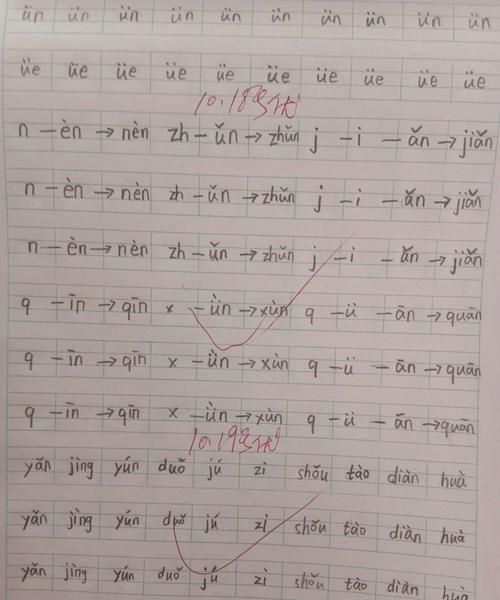 ün ün ün ün ün ün ün ün ün ün
üe üe üe üe üe üe üe üe üe üe
10.18号优
n – èn → nèn zh – ǔn → zhǔn j – i – ǎn → jiǎn
n – èn → nèn zh – ǔn → zhǔn j – i – ǎn → jiǎn
n – èn → nèn zh – ǔn → zhǔn j – i – ǎn → jiǎn
q – īn → qīn x – ǜn → xùn q – ü – ān → quān
q – īn → qīn x – ǜn → xùn q – ü – ān → quān
q – īn → qīn x – ǜn → xùn q – ü – ān → quān
10.19号优
yǎn jìng yún duǒ jú zi shǒu tào diàn huà
yǎn jìng yún duǒ jú zi shǒu tào diàn huà
yǎn jìng yún duǒ jú zi shǒu tào diàn huà